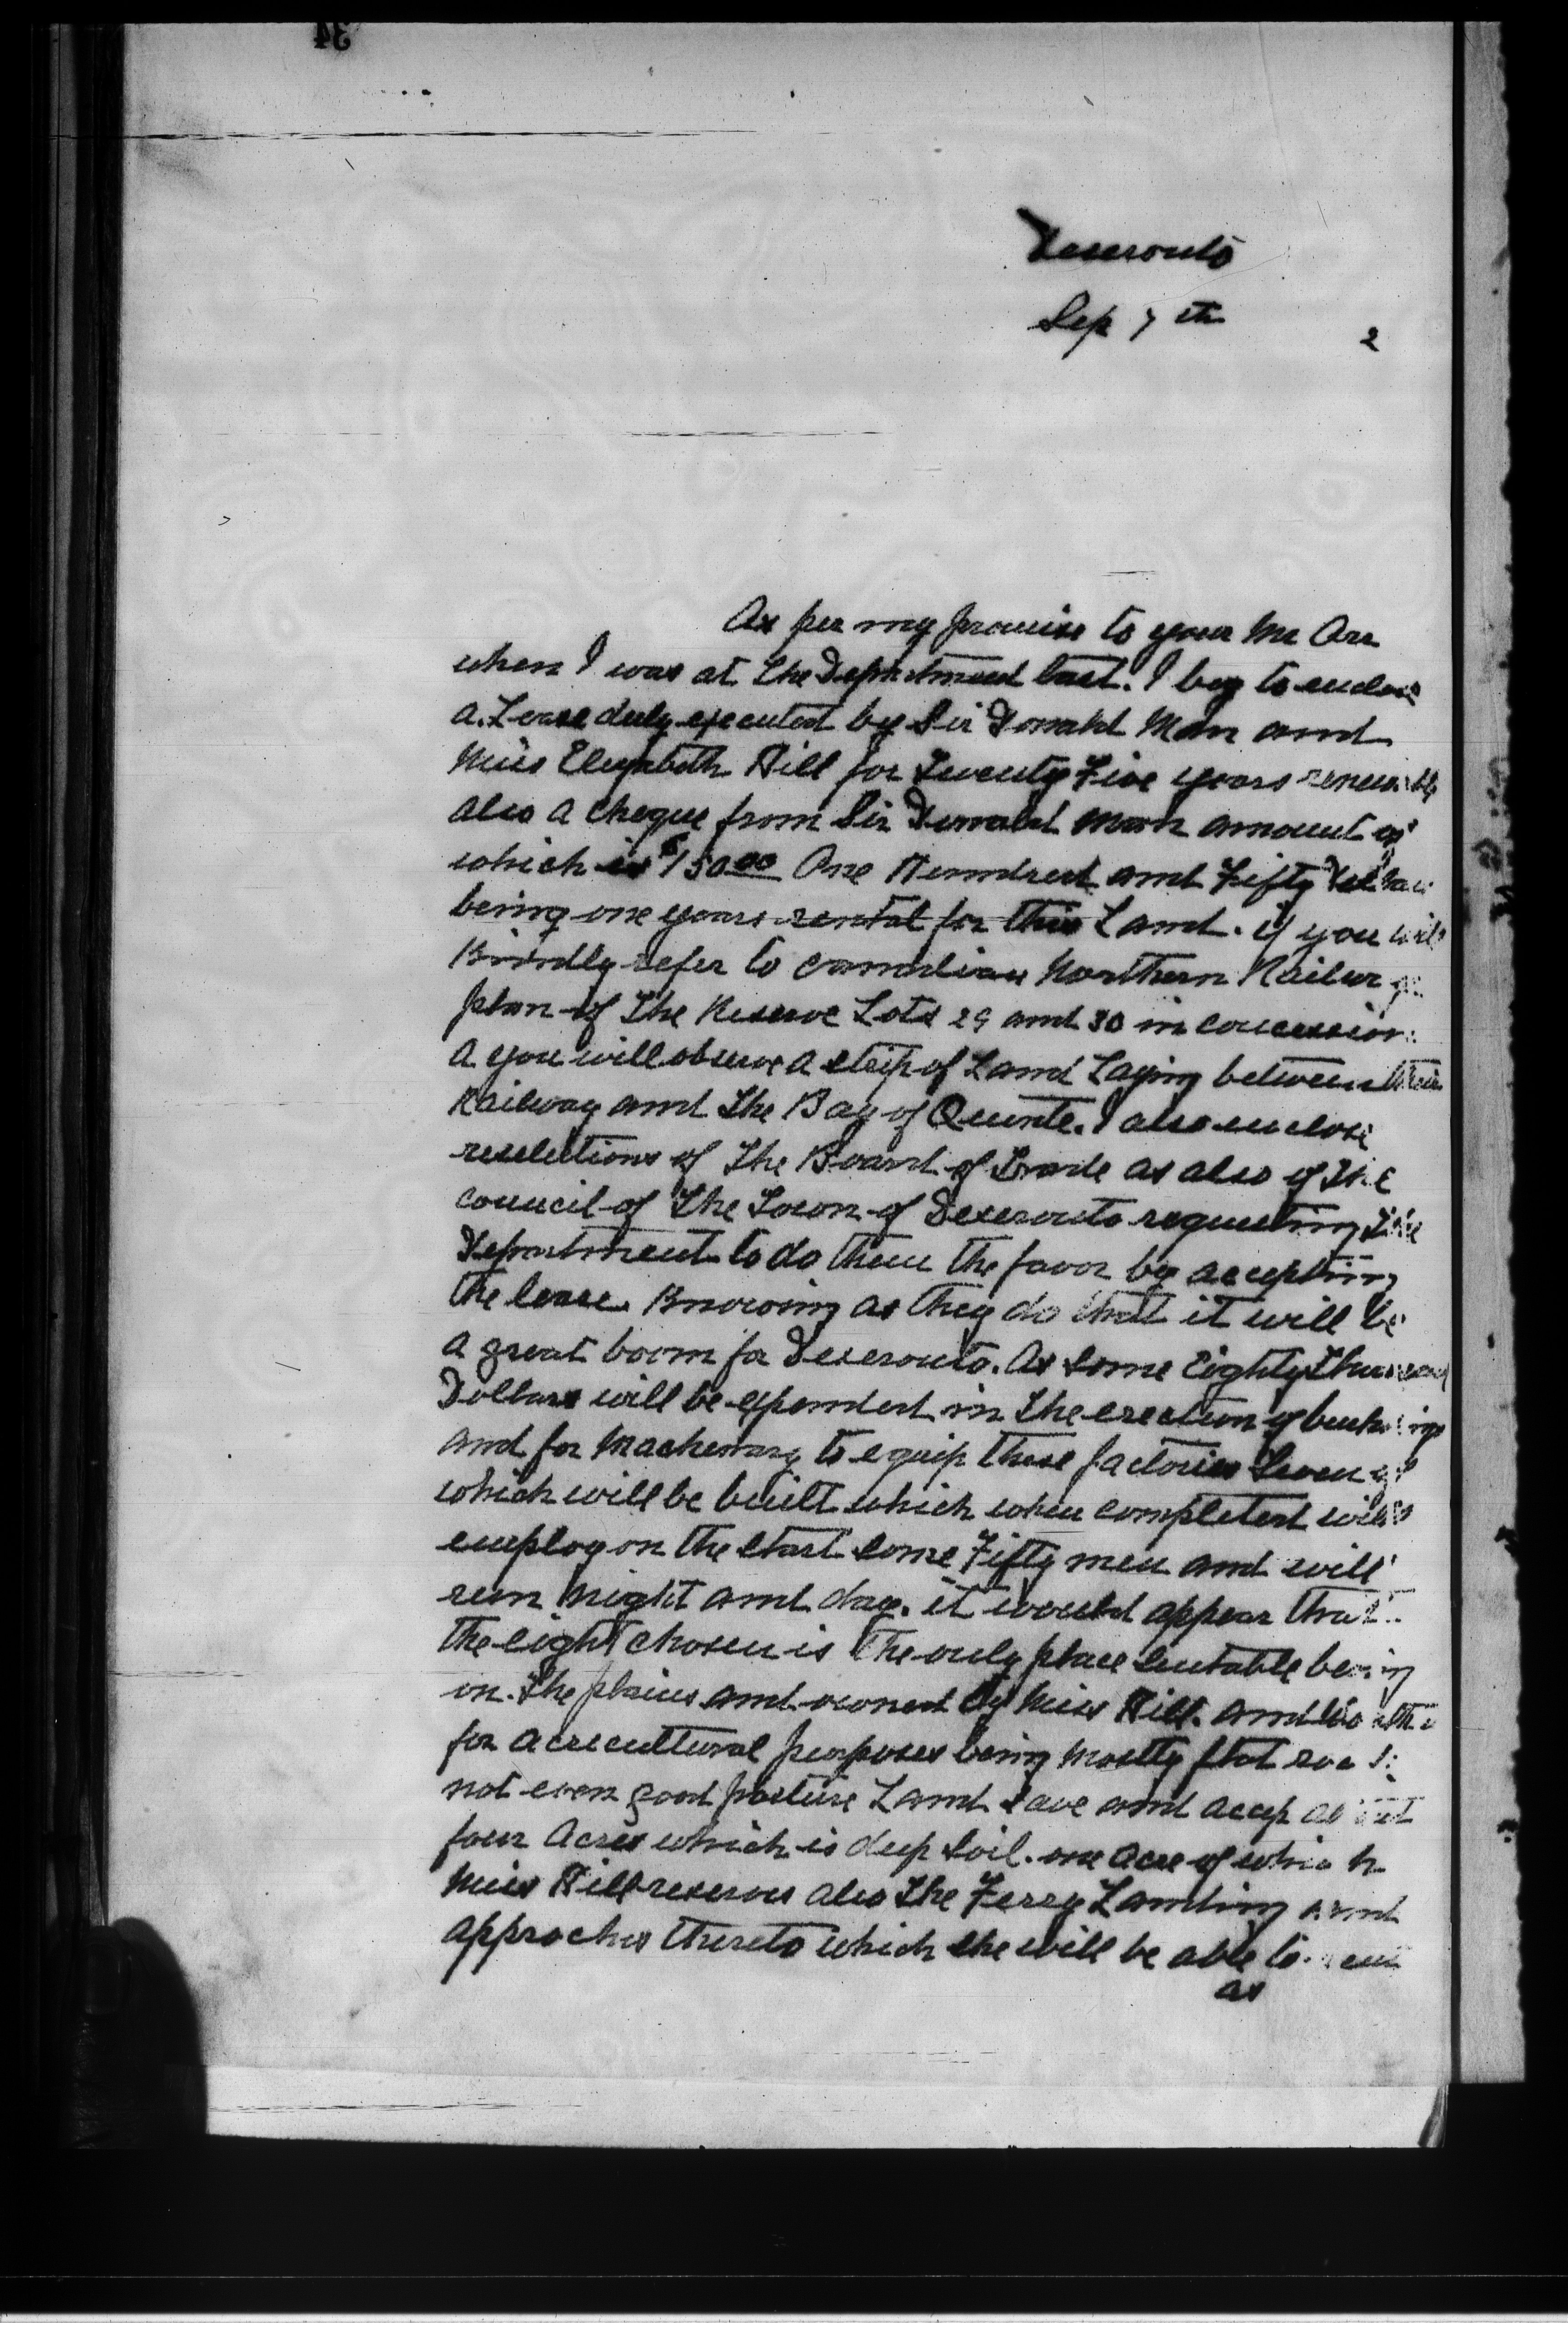 34
Deseronto
Sep 7th
2
As per my promise to your Mr Orr
when I was at The Department last. I beg to enclose
a Lease duly executed by Sir Donald Man and
Miss Elizabeth Hill for Twenty Five years renewable
also a cheque from Sir Donald Mann amount of
which is $150.00 One Hundred and Fifty Dollars
being one years rental for this Land. if you will
Kindly refer to Canadian Northern Railway
plan of The Reserve Lots 29 and 30 in concession
A you will observe a strip of Land Laying between
Railway and The Bay of Quinte. I also enclose
resolutions of The Board of Trade as also of The
council of The Town of Deseronto requesting The
Department to do them the favor by accepting
the lease. Knowing as they do that it will be
a great boom for Deseronto. As some Eighty Thousand
Dollars will be expended in The erection of buildings
and for machenary to equip these factories
which will be built which when completed will
employ on the start some Fifty men and will
run Night and day. it would appear that
the sight chosen is The only place suitable being
on The plains and owned by Miss Hill. and
for acrecultural purposes being mostly flat rock
not even good pasture Land save and accep about
four Acres which is deep soil. one acre of which
Miss Hill reserves also The Ferry Landing and
approches thereto which she will be able to
as